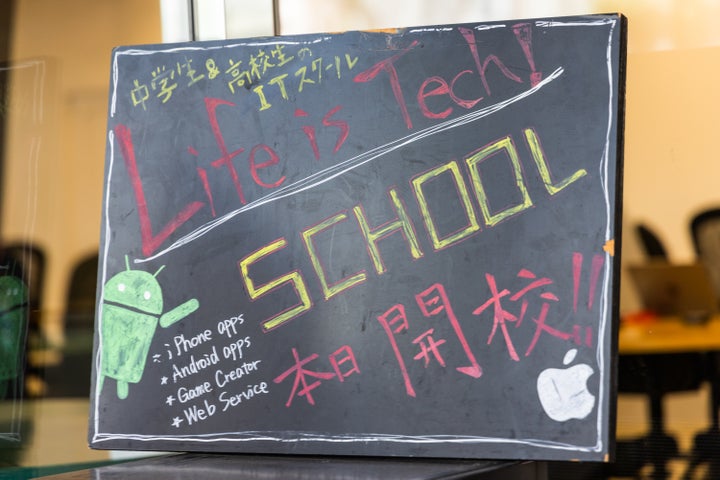 中学生&高校生の
ITスクール
Life is Tech!
SCHOOL
本日開校!!
iPhone apps
* Android apps
* Game Creator
* Web Service